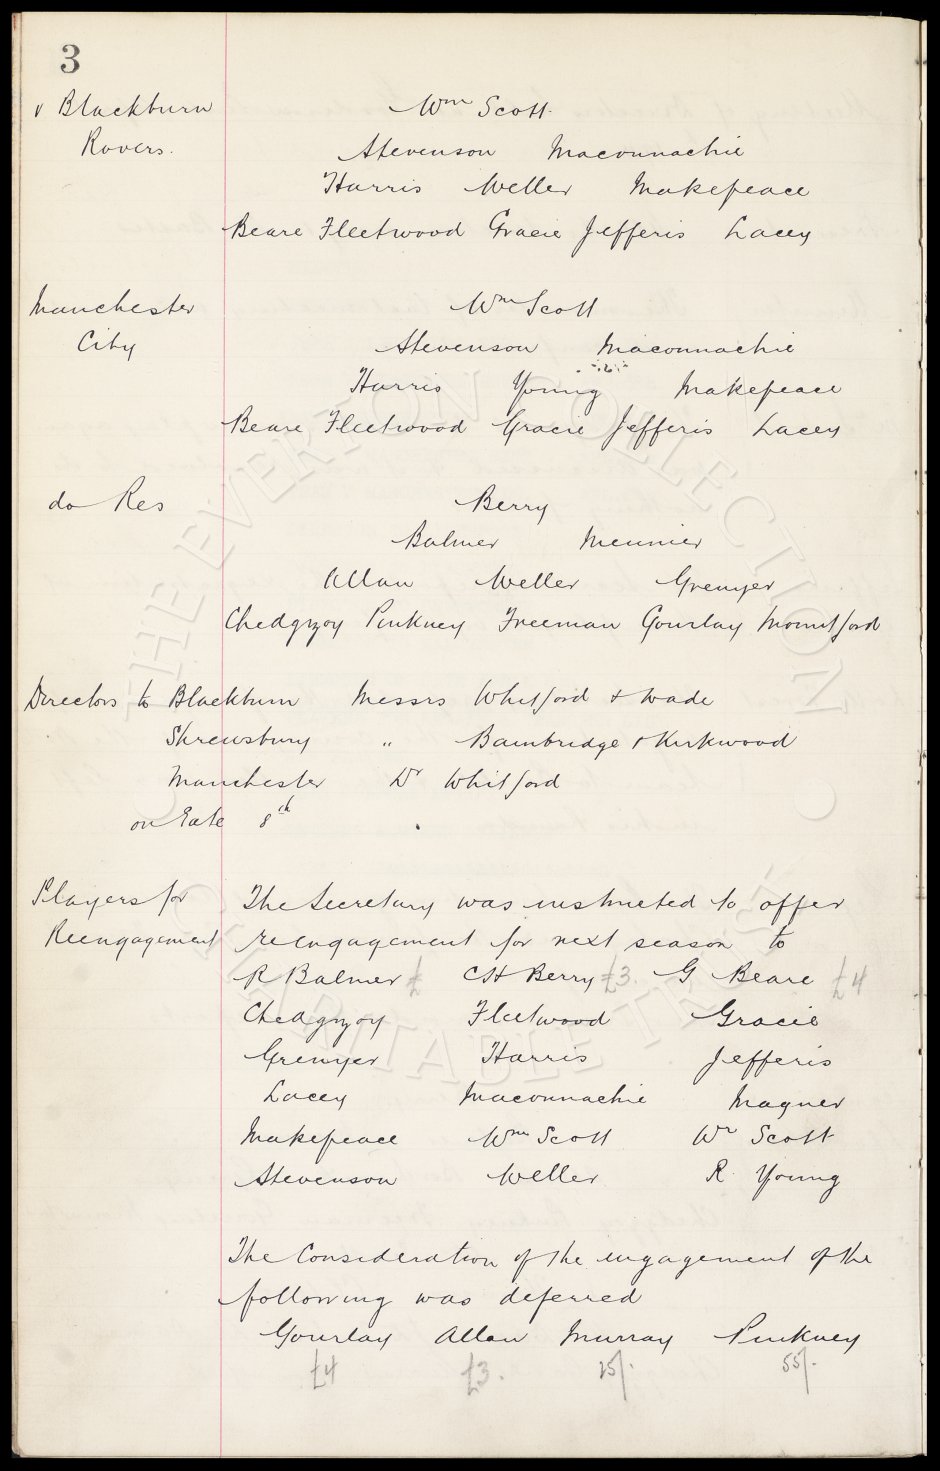 3
v Blackburn Rovers.
Wm Scott.
Stevenson Maconnachie
Harris Weller Makepeace
Beare Fleetwood Gracie Jefferis Lacey
Manchester City
Wm Scott
Stevenson Maconnachie
Harris Young Makepeace
Beare Fleetwood Gracie Jefferis Lacey
do Res
Berry
Balmer Meunier
Allan Weller Grenyer
Chedgzoy Pinkney Freeman Gourlay Mountford
Directors to Blackburn Messrs Whitford & Wade
Shrewsbury " Bainbridge & Kirkwood
Manchester Dr Whitford
on Sate 8th
Players for Reengagement
The Secretary was instructed to offer
reengagement for next season to
R Balmer £ C H Berry £3. G Beare £4
Chedgzoy Fleetwood Gracie
Grenyer Harris Jefferis
Lacey Maconnachie Magner
Makepeace Wm Scott Wr Scott
Stevenson Weller R. Young
The Consideration of the engagement of the
following was deferred
Gourlay Allan Murray Pinkney
£4 £3. 25/. 55/.
THE EVERTON COLLECTION
CHARITABLE TRUST